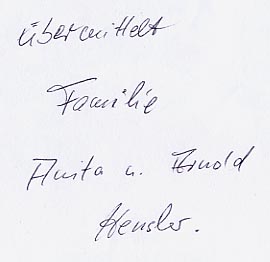 übermittelt
Familie
Anita u. Arnold
Hensler.